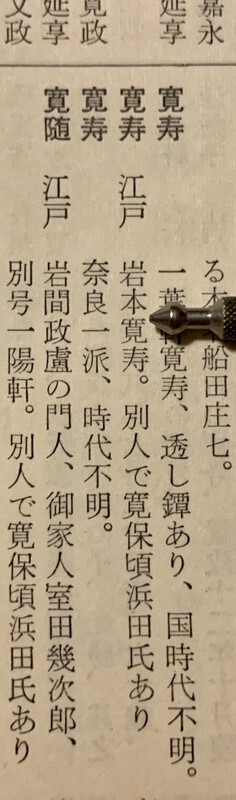 嘉永
延享
寛政
延享
文政
る 船田庄七。
寛寿 一葉 寛寿、透し鐔あり、国時代不明。
寛寿 江戸 岩本寛寿。別人で寛保頃浜田氏あり
寛寿 奈良一派、時代不明。
寛随 江戸 岩間政盧の門人、御家人室田幾次郎、
別号一陽軒。別人で寛保頃浜田氏あり